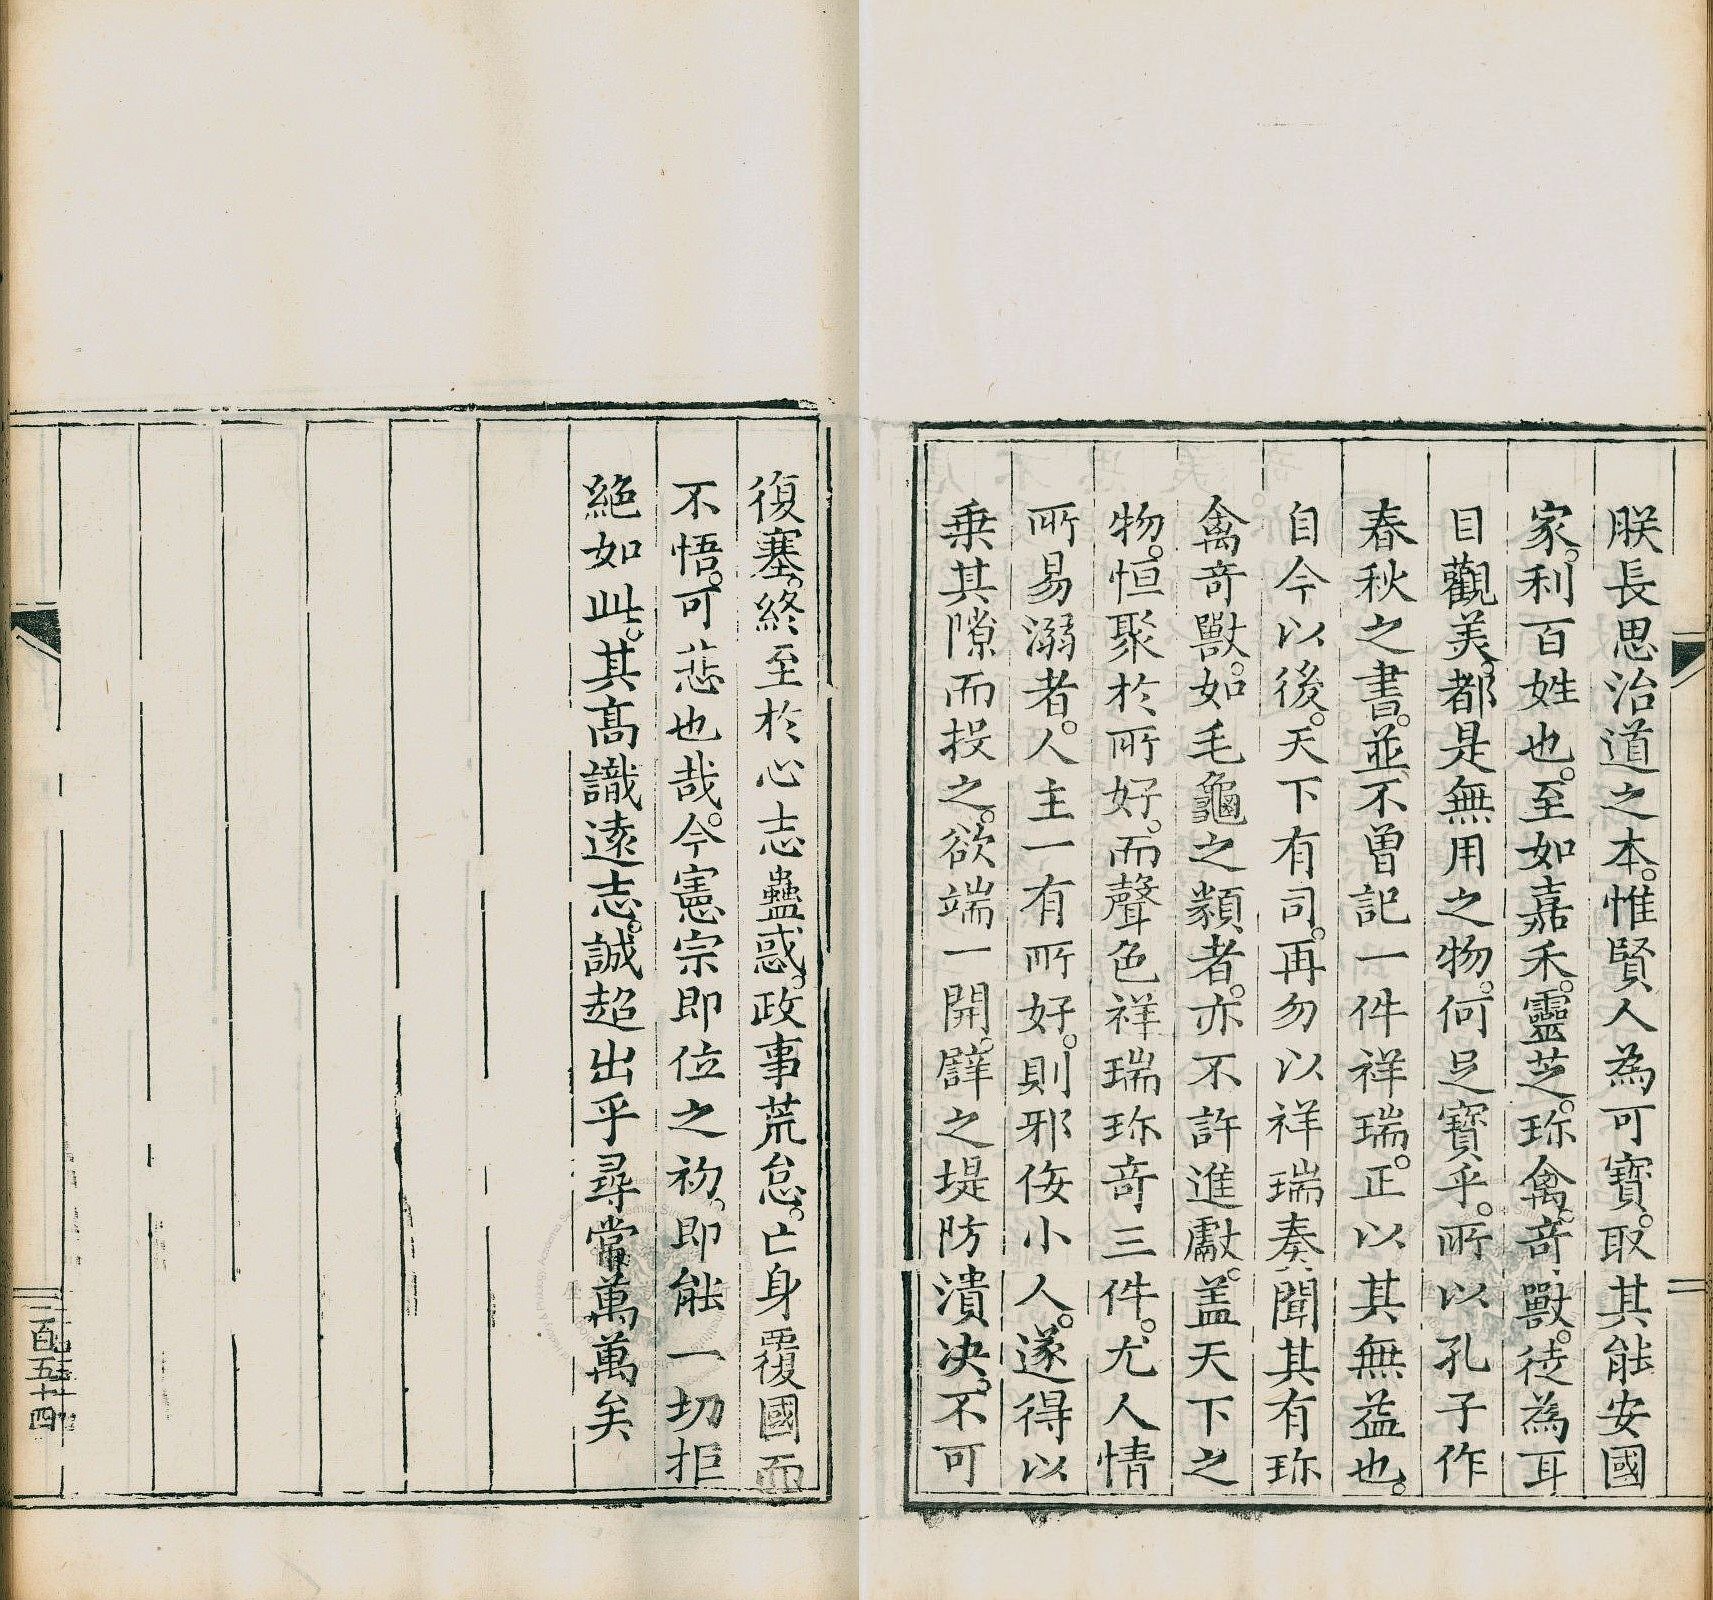 朕長思治道之本。惟賢人為可寶。取其能安國
家。利百姓也。至如嘉禾。靈芝。珎禽。竒獸。徒為耳
目觀美。都是無用之物。何足寶乎。所以孔子作
春秋之書。並不曾記一件祥瑞。正以其無益也。
自今以後。天下有司。再勿以祥瑞奏聞其有珎
禽竒獸。如毛龜之類者。亦不許進獻。盖天下之
物。恒聚於所好。而聲色祥瑞珎竒三件。尤人情
所易溺者。人主一有所好。則邪侫小人。遂得以
乗其隙而投之。欲端一開。譬之堤防潰决。不可
復塞。終至於心志蠱惑。政事荒怠。亡身覆國而
不悟。可悲也哉。今憲宗即位之初。即能一切拒
絶如此。其高識遠志。誠超出乎尋常萬萬矣
二百五十四